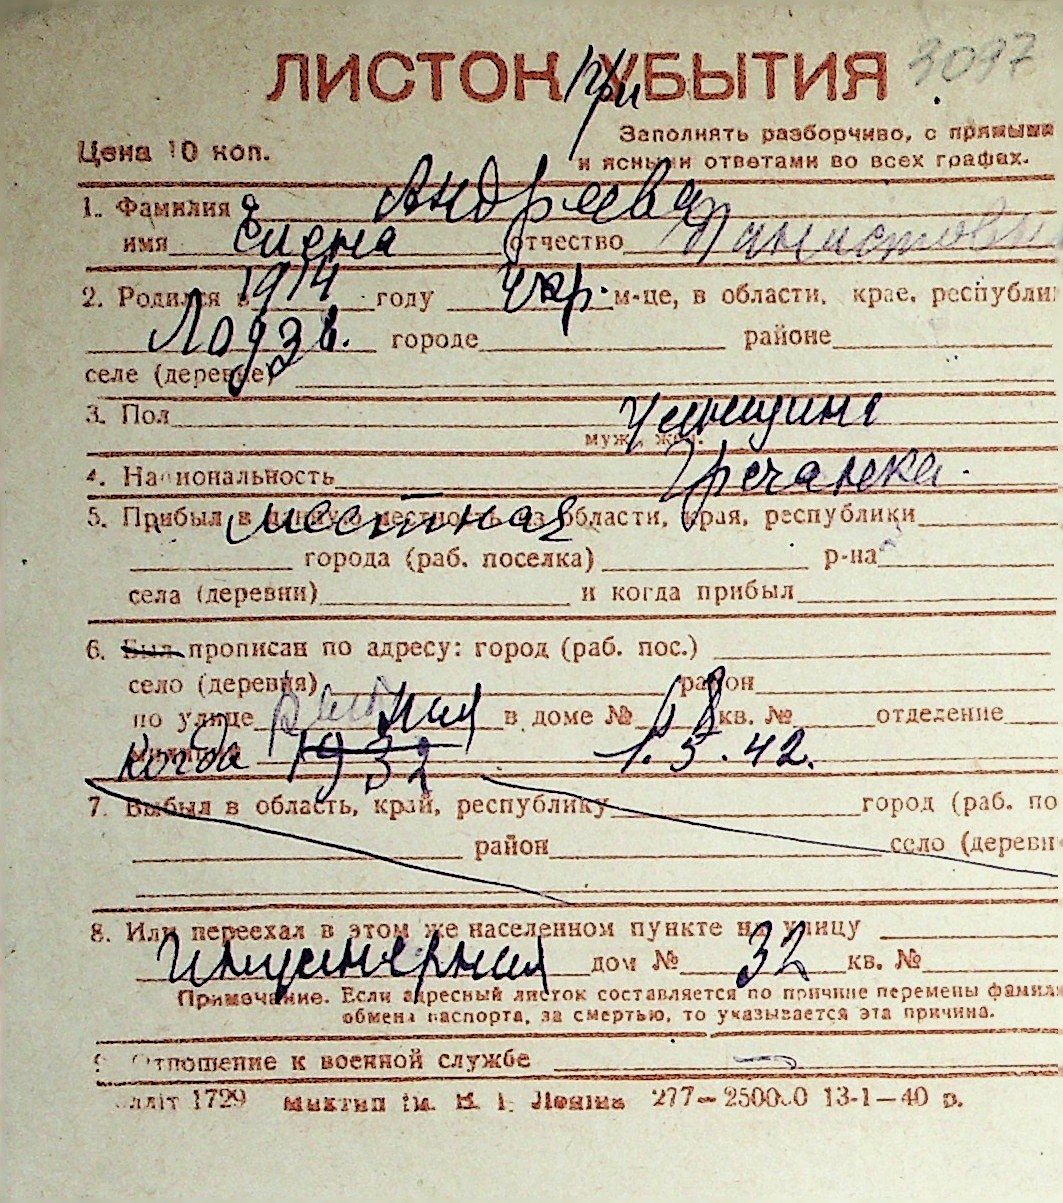 ЛИСТОК при УБЫТИЯ 3097
Заполнять разборчиво, с прямыми
Цена 10 коп.
и ясными ответами во всех графах.
1. Фамилия Андреева
имя Елена отчество
2. Родился в 1914 году Укр. м-це, в области, крае, республи
Лодзь. городе районе
селе (деревне)
3. Пол женщина
муж., жен.
4. Национальность Гречанска.
5. Прибыл в данную местность из области, края, республики местная
города (раб. поселка) р-на
села (деревни) и когда прибыл
6. Был прописан по адресу: город (раб. пос.)
село (деревня) район
по улице в доме № 68 кв. № отделение
милиции когда 1932 1.5.42.
7. Выбыл в область, край, республику город (раб. по
район село (деревн
8. Или переехал в этом же населенном пункте на улицу
Инженерная дом № 32 кв. №
Примечание. Если адресный листок составляется по причине перемены фамили
обмена паспорта, за смертью, то указывается эта причина.
9. Отношение к военной службе —
1729 им. В. І. Леніна 13-1—40 р.